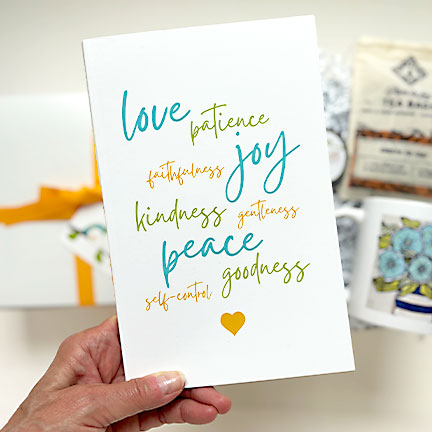 love
patience
joy
faithfulness
kindness
gentleness
peace
goodness
self-control
TEA BAGS